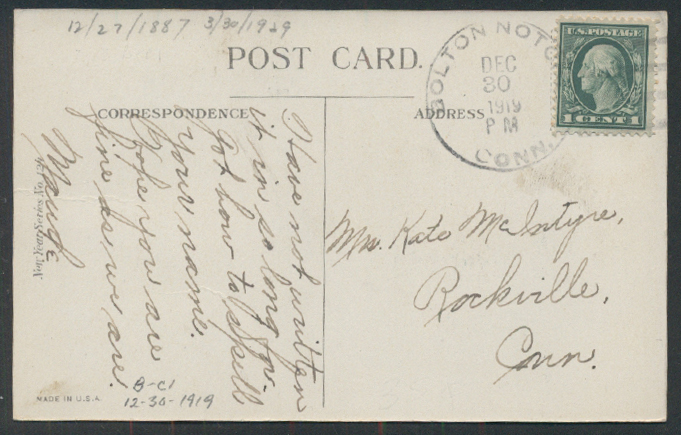 12/27/1887 3/30/1929
POST CARD.
CORRESPONDENCE
ADDRESS
BOLTON NOTC
DEC
30
1919
P M
CONN.
U.S. POSTAGE
1 CENT 1
Have not written
it in so long for-
got how to spell
your name.
Hope you are
fine as we are.
Maude
Mrs. Kate McIntyre,
Rockville,
Conn.
B-C1
12-30-1919
MADE IN U.S.A.